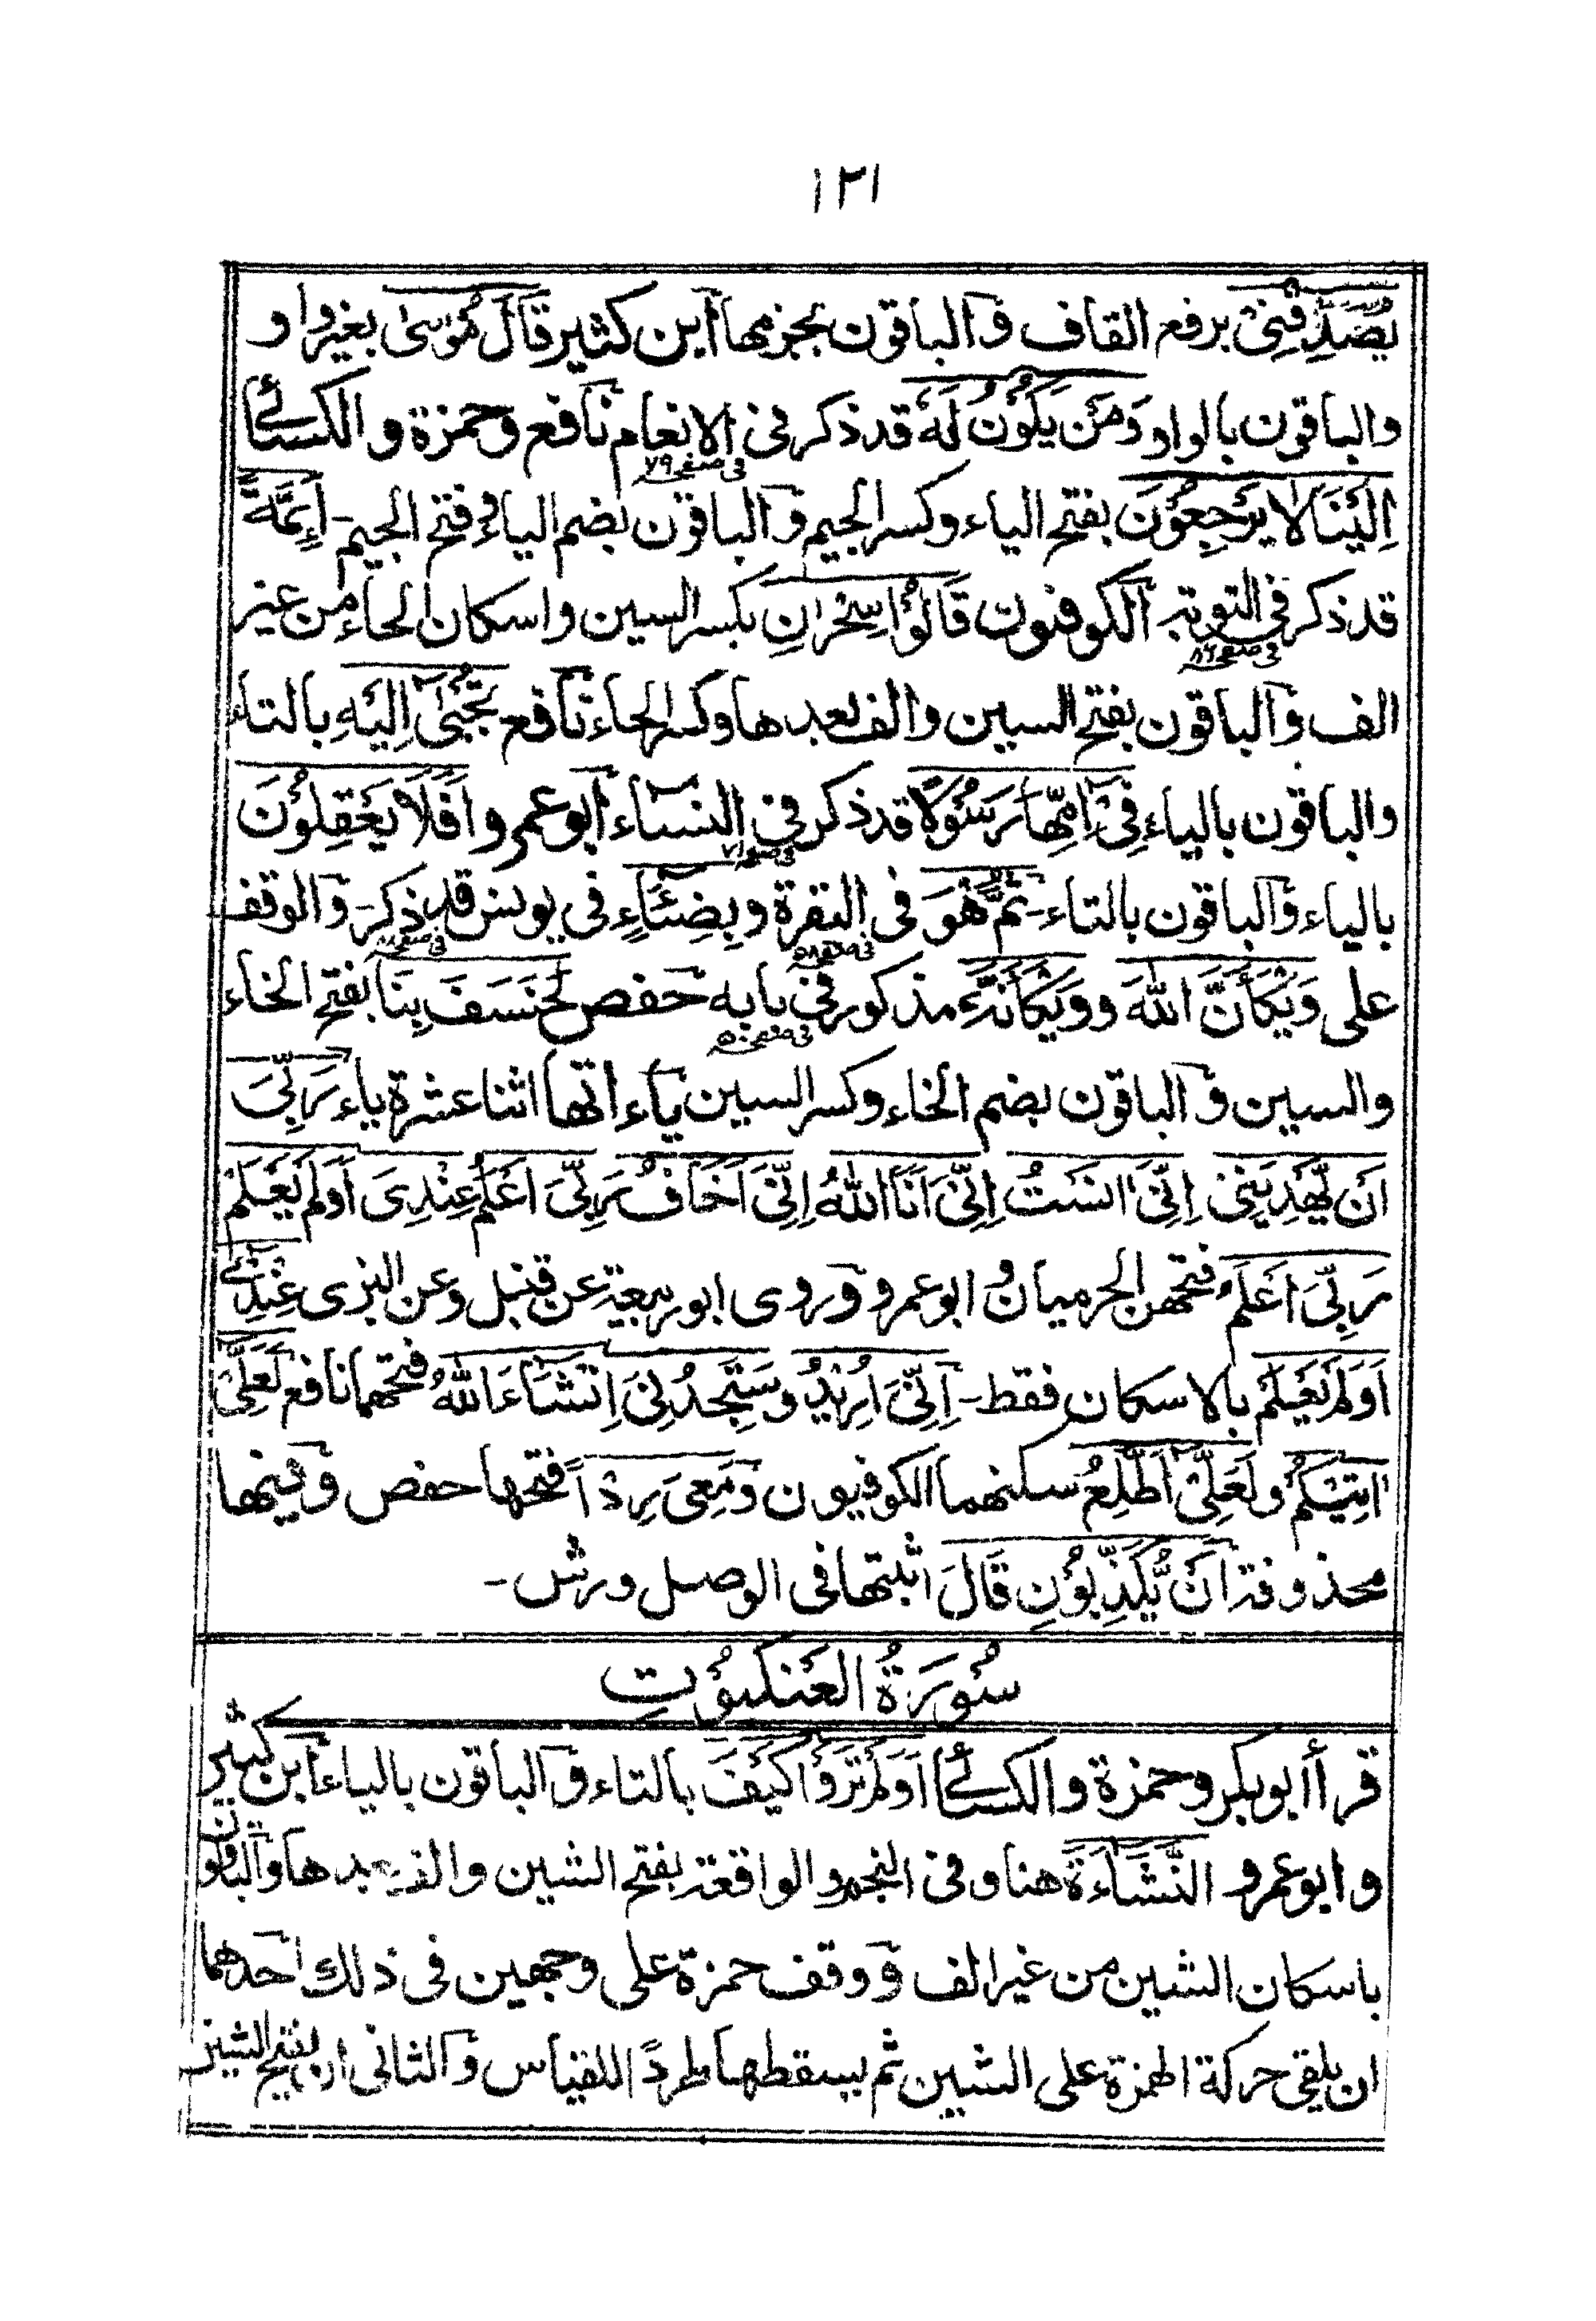 ١٢١
يُّصَدِّقُنِيْ برفع القاف و الباقون بجزمها ابن كثير قَالَ مُوْسٰى بغير واو
والباقون بالواو وَمَنْ يَكُوْنُ لَهٗ قد ذكر فى الانعام نافع وحمزة و الكسائى
فى صفحه ٧٩
اِلَيْنَا لَا يَرْجِعُوْنَ بفتح الياء وكسر الجيم و الباقون بضم الياء وفتح الجيم - اَئِمَّةً
قد ذكر فى التوبة الكوفيون قَالُوْا سِحْرَانِ بكسر السين و اسكان الحاء من غير
فى صفحه ٨٦
الف و الباقون بفتح السين و الف بعدها وكسر الحاء نافع تُجْبٰى اِلَيْهِ بالتاء
والباقون بالياء فِىْ اُمِّهَا رَسُوْلًا قد ذكر فى النساء ابو عمرو اَفَلَا يَعْقِلُوْنَ
فى صفحه ٧١
بالياء و الباقون بالتاء - ثُمَّ هُوَ فى البقرة و بِضِيَآءٍ فى يونس قد ذكر - و الوقف
فى صفحه ٥٨ فى صفحه ٨٨
على وَيْكَاَنَّ اللّٰهَ و وَيْكَاَنَّهٗ مذكور فى بابه حفص لَخَسَفَ بِنَا بفتح الخاء
فى صفحه ٥٠
والسين و الباقون بضم الخاء وكسر السين ياءاتها اثنا عشرة ياء رَبِّىَ
اَنْ يَّهْدِيَنِىْ اِنِّىَ اٰنَسْتُ اِنِّىَ اَنَا اللّٰهُ اِنِّىَ اَخَافُ رَبِّىَ اَعْلَمُ عِنْدِىَ اَوَلَمْ يَعْلَمْ
رَبِّىَ اَعْلَمُ فتحهن الحرميان و ابو عمرو و روى ابو ربيعة عن قنبل و عن البزى عِنْدِىْ
اَوَلَمْ يَعْلَمْ بالاسكان فقط - اِنِّىَ اُرِيْدُ و سَتَجِدُنِىَ اِنْ شَآءَ اللّٰهُ فتحهما نافع لَعَلِّىْ
اٰتِيْكُمْ و لَعَلِّىْ اَطَّلِعُ سكنهما الكوفيون و مَعِىَ رِدْاً فتحها حفص و فيها
محذوفة اَنْ يُّكَذِّبُوْنِ قَالَ اثبتها فى الوصل ورش -
سُوْرَةُ الْعَنْكَبُوْتِ
قرأ ابو بكر و حمزة و الكسائى اَوَلَمْ تَرَوْا كَيْفَ بالتاء و الباقون بالياء ابن كثير
و ابو عمرو النَّشَآءَةَ هنا و فى النجم و الواقعة بفتح الشين و الف بعدها و الباقون
باسكان الشين من غير الف و وقف حمزة على وجهين فى ذلك احدهما
ان يلقى حركة الهمزة على الشين ثم يسقطها طرداً للقياس و الثانى ان يفتح الشين